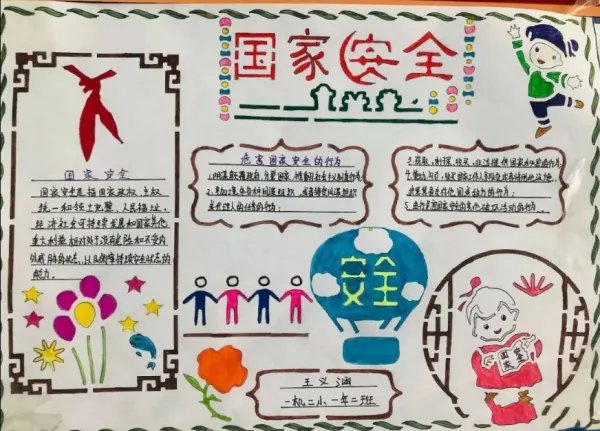 国家安全
国家 安全
国家安全是指国家政权、主权、
统一和领土完整、人民福祉、
经济社会可持续发展和国家其他
重大利益相对处于没有危险和不受内
外威胁的状态，以及保障持续安全状态的
能力。
危害国家安全的行为
1.阴谋颠覆政府，分裂国家，推翻社会主义制度
2.参加间谍各种间谍组织，或者接受间谍组织
及代理人的任务的行为；
3.窃取、刺探、收买、非法提供国家秘密的行为
4.策动、勾引、收买国家工作人员叛变或者将防地设施、
武器装备交付他国或敌方的行为；
5.进行危害国家安全的其他破坏活动的行为。
安全
国家
安全
王义涵
一机二小一年二班